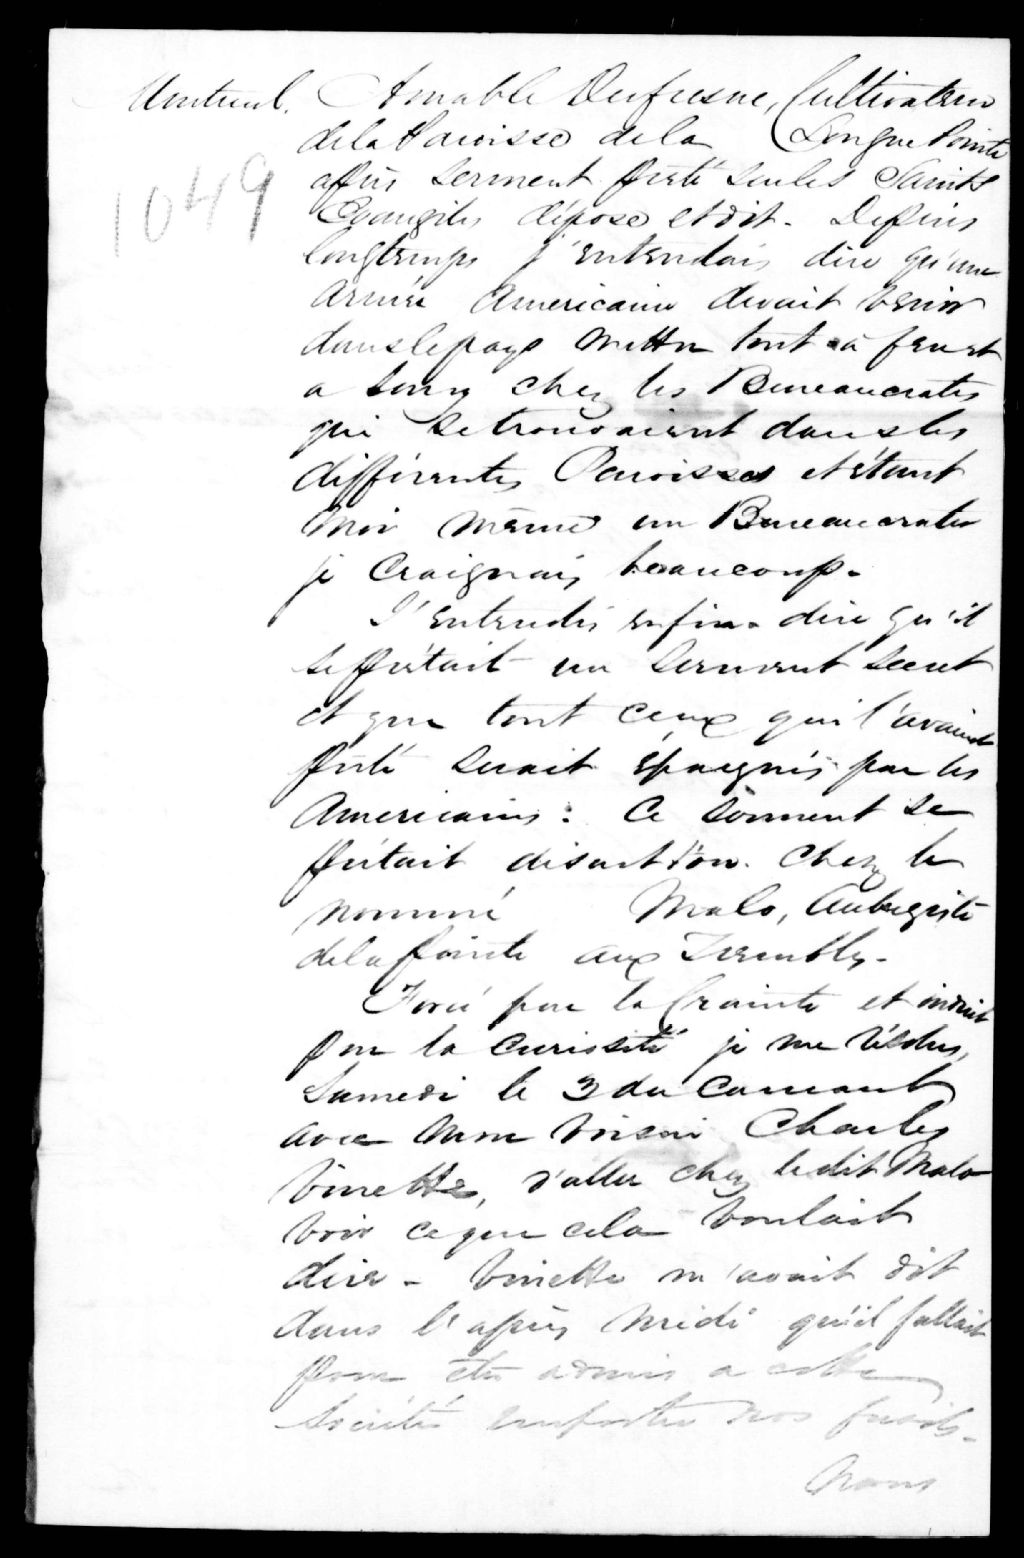 Montreal. Amable Dufresne, Cultivateur
de la Paroisse de la Longue Pointe
1049
après serment prêté sur les Saints
Evangiles dépose et dit - Depuis
longtemps j'entendais dire qu'une
armée Américaine devait venir
dans le pays mettre tout à feu et
a sang chez les Bureaucrates
qui se trouvaient dans les
différentes Paroisses et étant
moi même un Bureaucrate
je craignais beaucoup -
J'entendis enfin dire qu'il
se prêtait un serment secret
et que tout ceux qui l'avaient
prêté serait épargnés par les
Americains : Ce serment se
prêtait disait on. Chez le
nommé Malo, Aubergiste
de la Pointe aux Trembles -
Forcé par la Crainte et induit
par la curiosité je me résolus,
Samedi le 3 du Courant
avec mon voisin Charles
Vinette, d'aller chez le dit Malo
voir ce que cela voulait
dire - Vinette m'avait dit
dans l'après midi qu'il fallait
pour être admis a cette
Société emporter nos fusils -
Nous